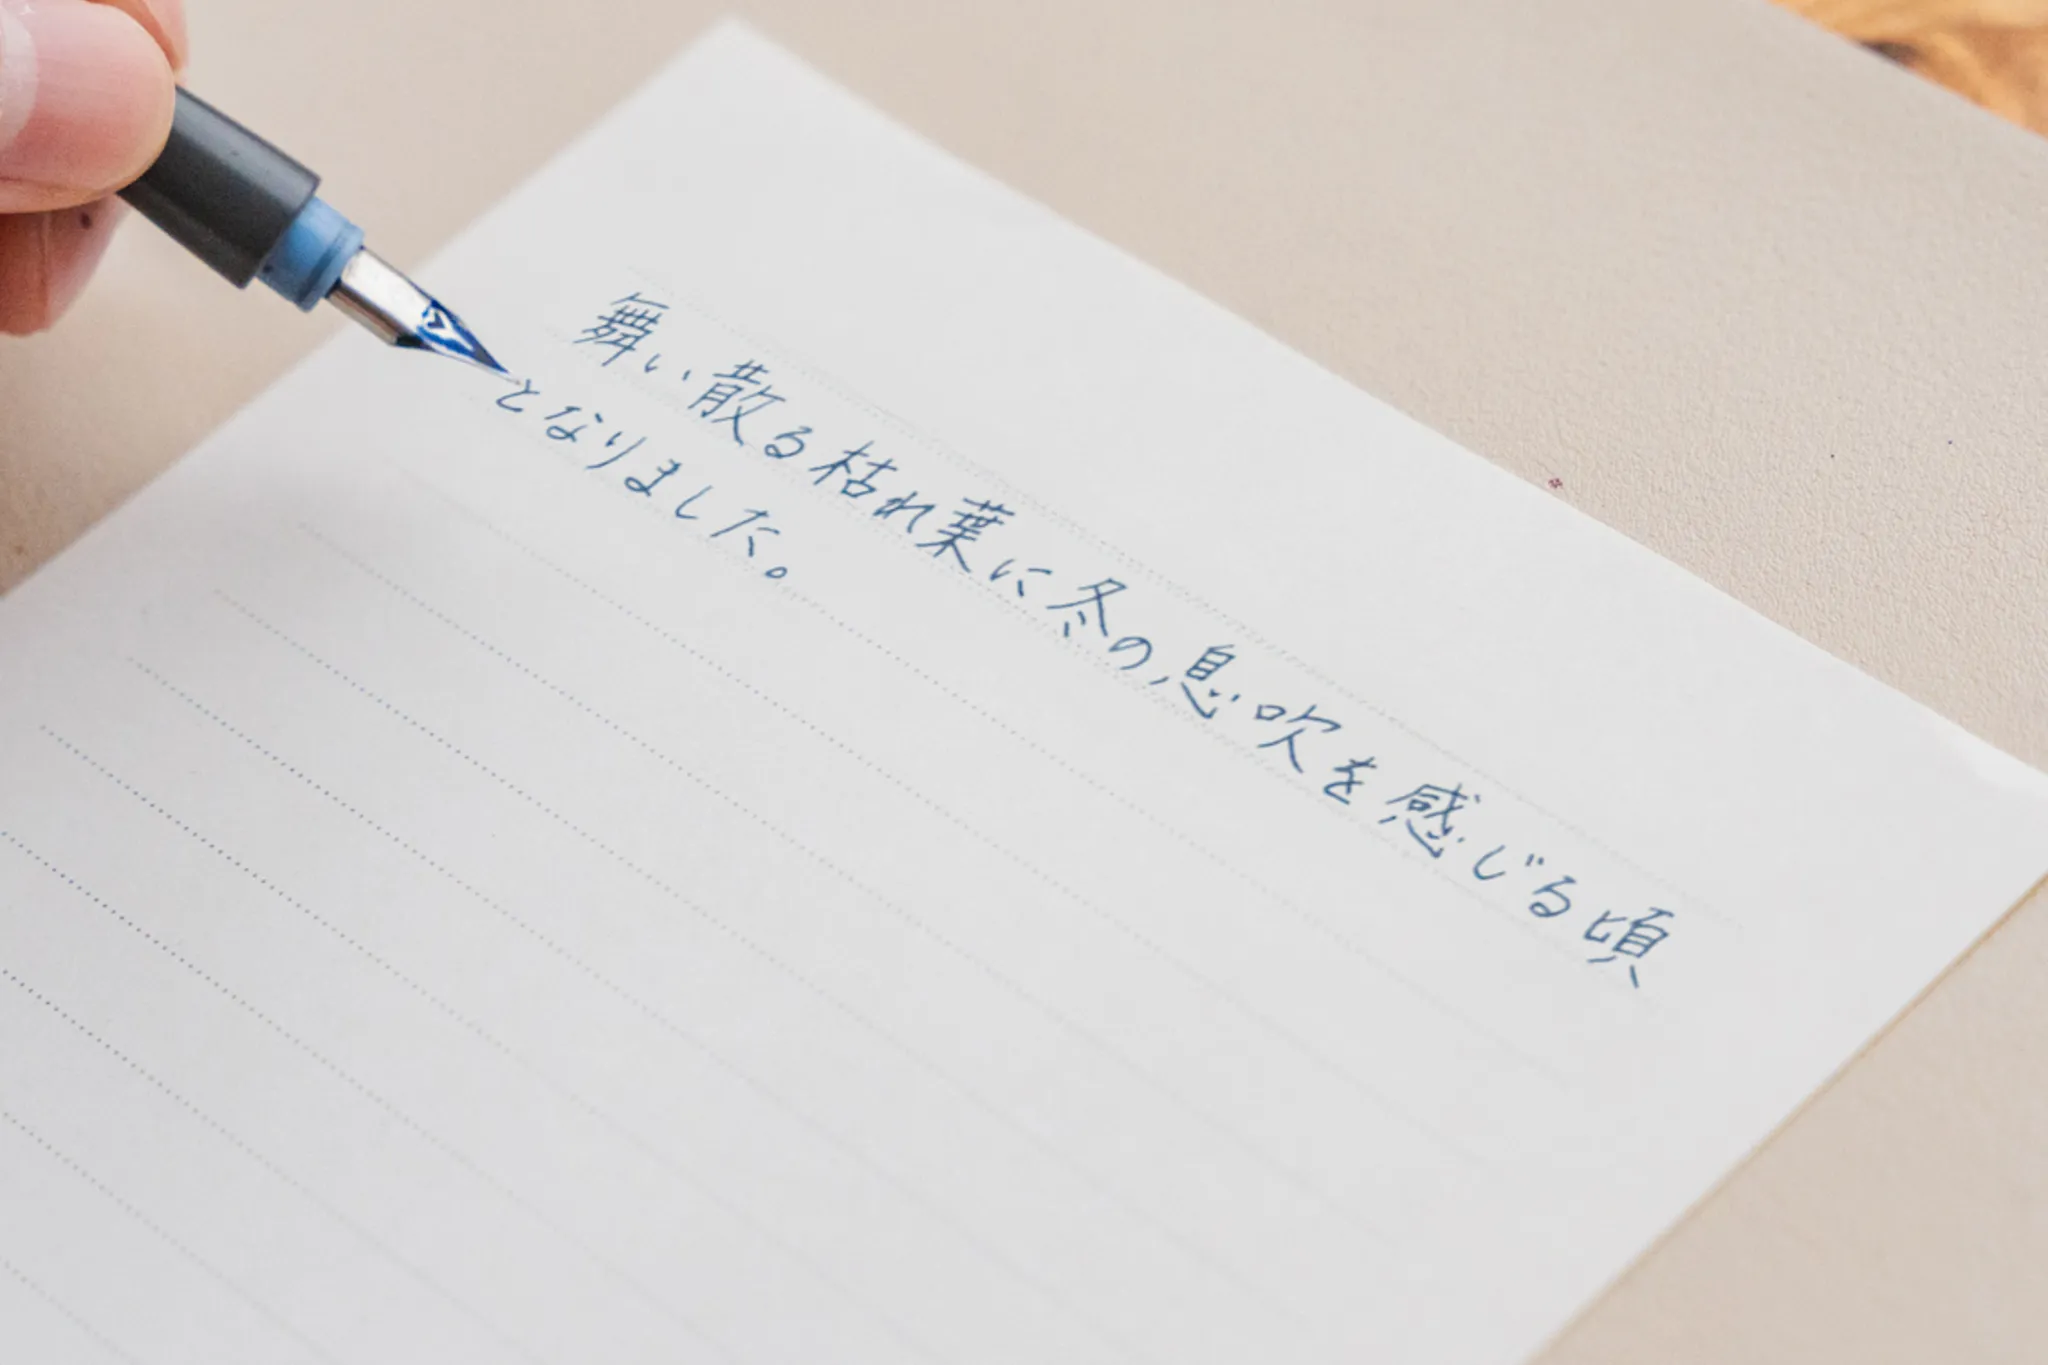 舞い散る枯れ葉に冬の息吹を感じる頃
となりました。